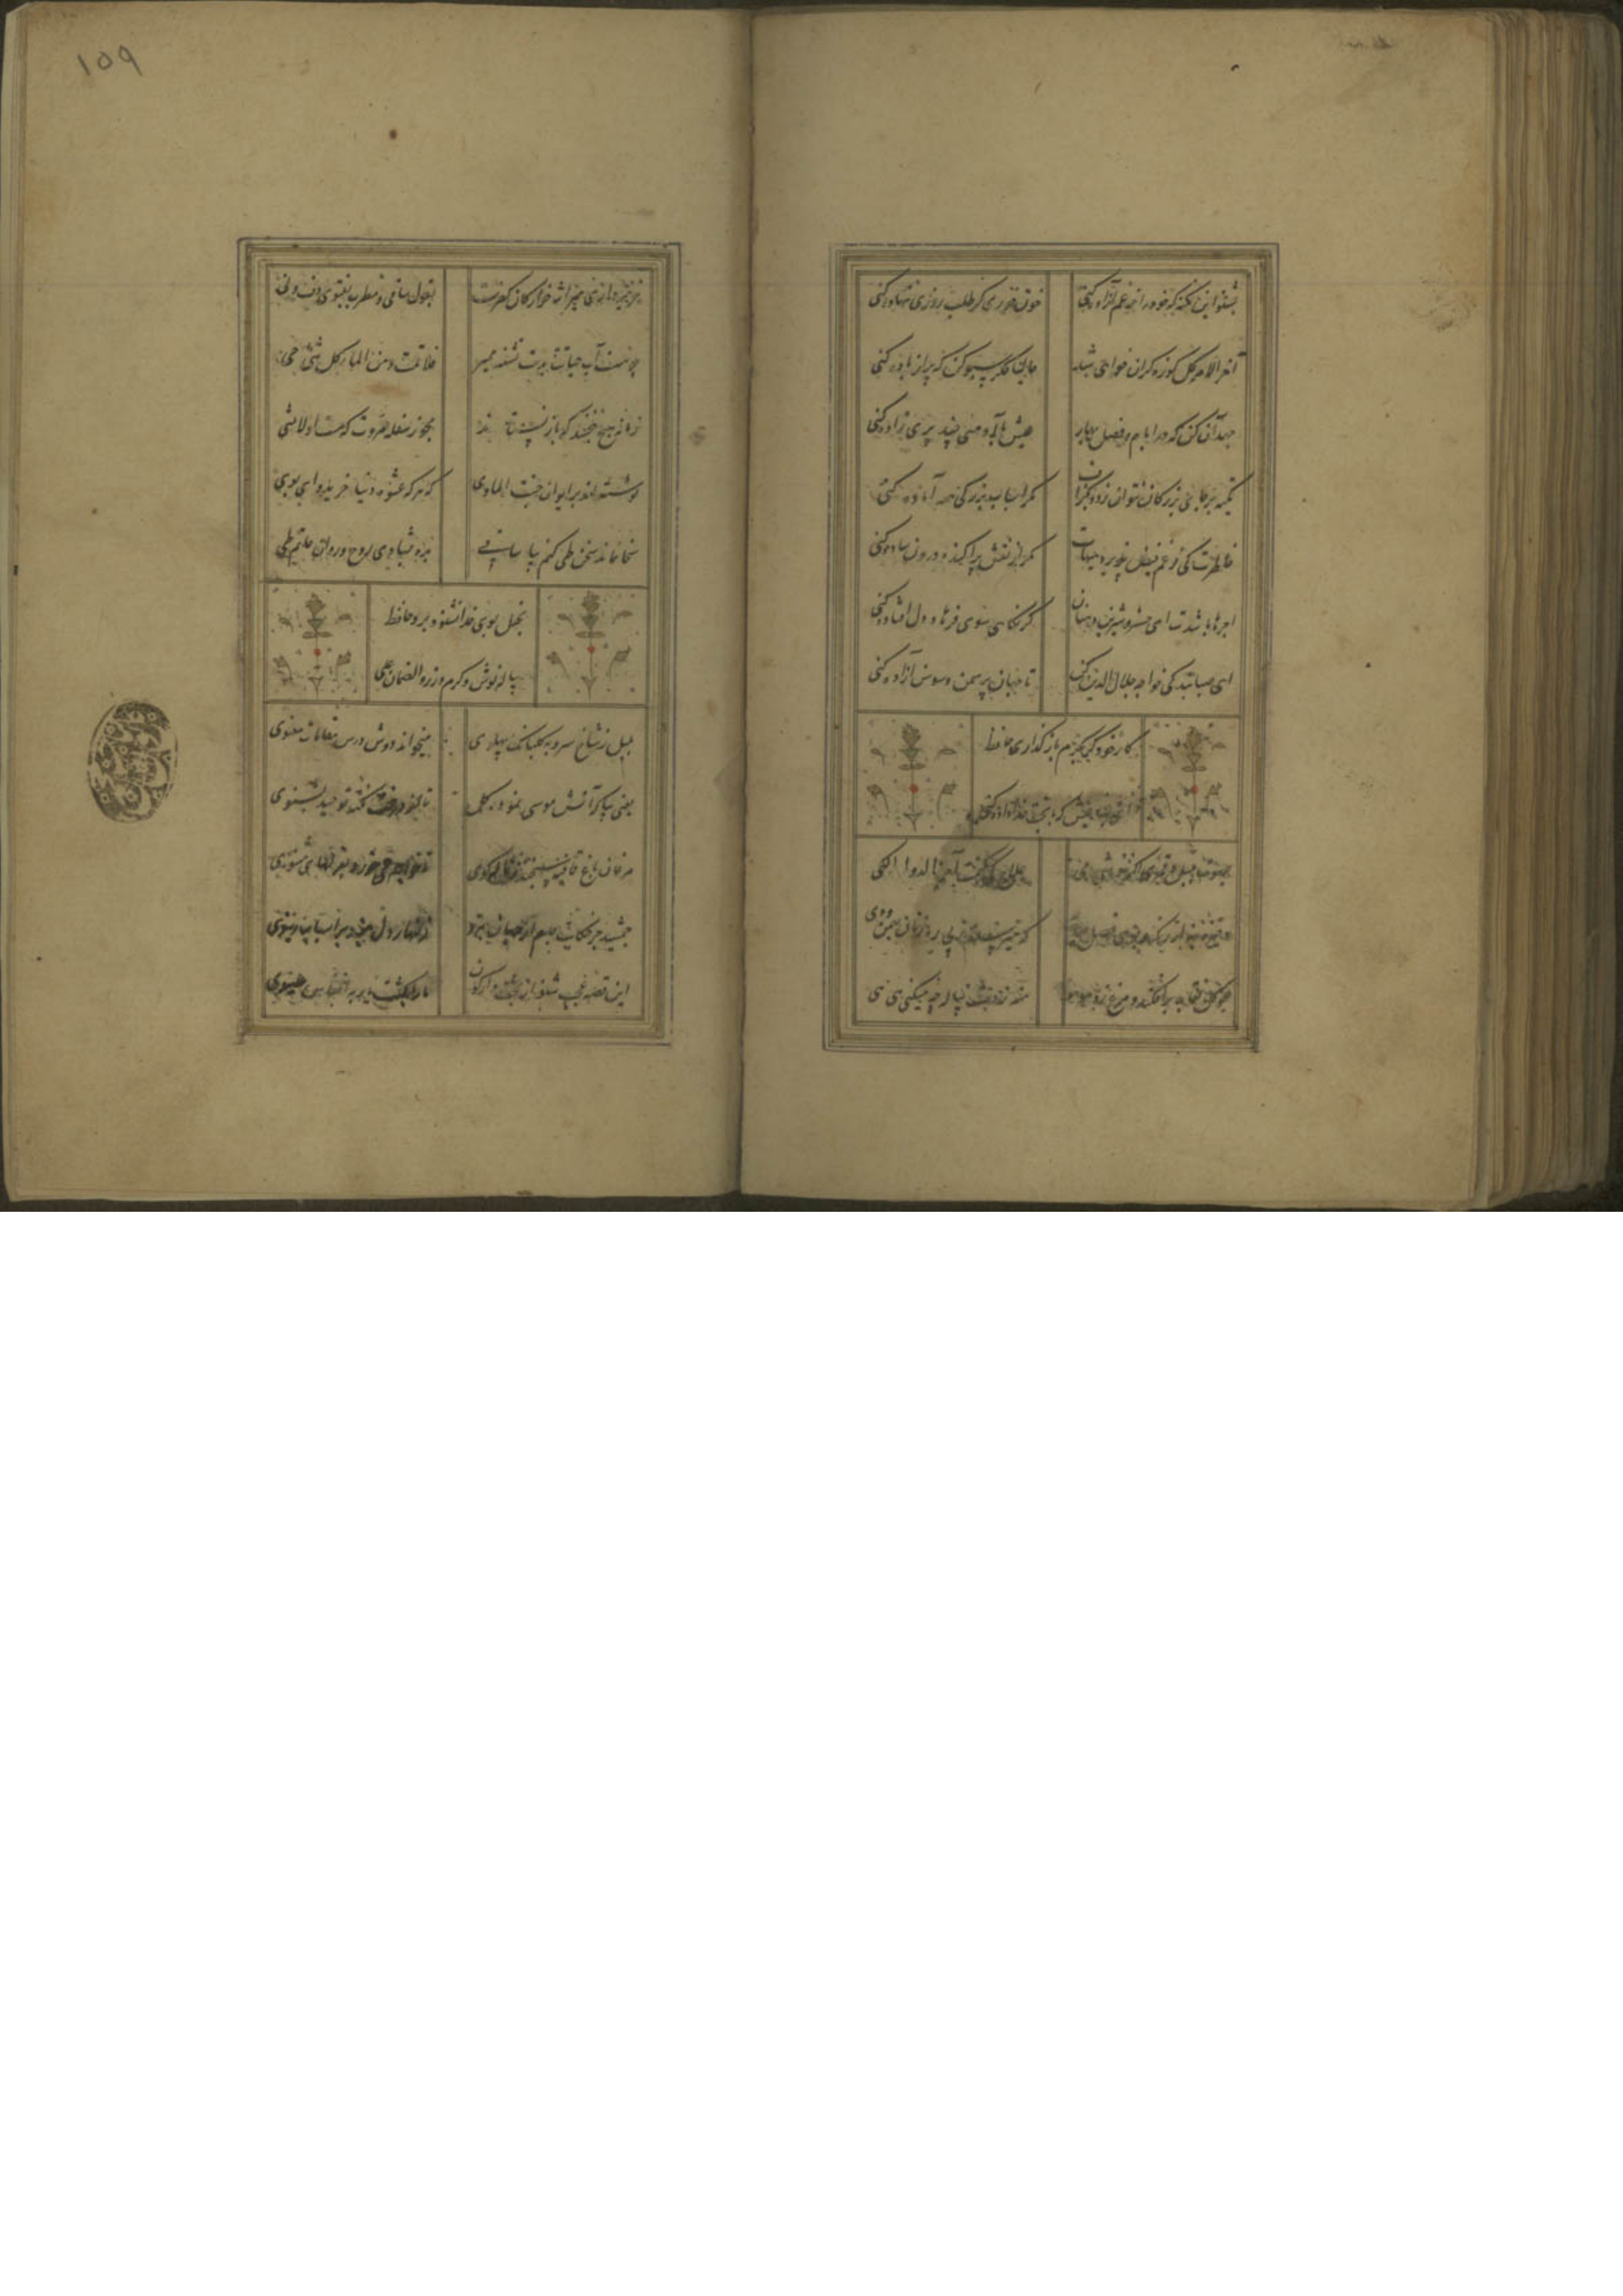 بشنو این نکته که خود را ز غم آزاده کنی
خون خوری گر طلب روزی ننهاده کنی
آخر الامر گل کوزه گران خواهی شد
حالیا فکر سبو کن که پر از باده کنی
جهد آن کن که در ایام و فصل بهار
عیش با آدمی چند پری زاده کنی
تکیه بر جای بزرگان نتوان زد بگزاف
مگر اسباب بزرگی همه آماده کنی
خاطرت کی رقم فیض پذیرد هیهات
مگر از نقش پراکنده درون ساده کنی
اجرها باشدت ای خسرو شیرین دهنان
گر نگاهی سوی فرهاد دل افتاده کنی
ای صبا بندگی خواجه جلال الدین کن
تا جهان پر سمن و سوسن آزاده کنی
کار خود گر بکرم باز گذاری حافظ
عیش که با بخت خداداده کنی
علاج کی کنمت آخر الدوا الکی
که میرسند ز پی رهزنان بهمن و دی
چو گل نقاب برافکند و مرغ زد هو هو
منه ز دست پیاله چه میکنی هی هی
خزینه داری میراث خوارگان کفرست
بقول ساقی و مطرب بفتوی دف و نی
چو هست آب حیاتت بدست تشنه ممیر
فلا تمت و من الماء کل شیء حی
زمانه هیچ نبخشد که باز نستاند
مجو ز سفله مروت که شیئه لا شی
نوشته اند بر ایوان جنت الماوی
که هر که عشوه دنیا خرید وای بوی
سخا نماند سخن طی کنم بیا ساقی
بده بشادی روح و روان حاتم طی
بخیل بوی خدا نشنود برو حافظ
پیاله نوش و کرم ورز و الضمان علی
بلبل ز شاخ سرو بگلبانگ پهلوی
میخواند دوش درس مقامات معنوی
یعنی بیا که آتش موسی نمود گل
تا از درخت نکته توحید بشنوی
مرغان باغ قافیه سنجند و بذله گوی
تا خواجه می خورد بغزلهای پهلوی
جمشید جز حکایت جام از جهان نبرد
زنهار دل مبند بر اسباب دنیوی
این قصه عجب شنو از بخت واژگون
ما را بکشت یار به انفاس عیسوی
۱۵۹